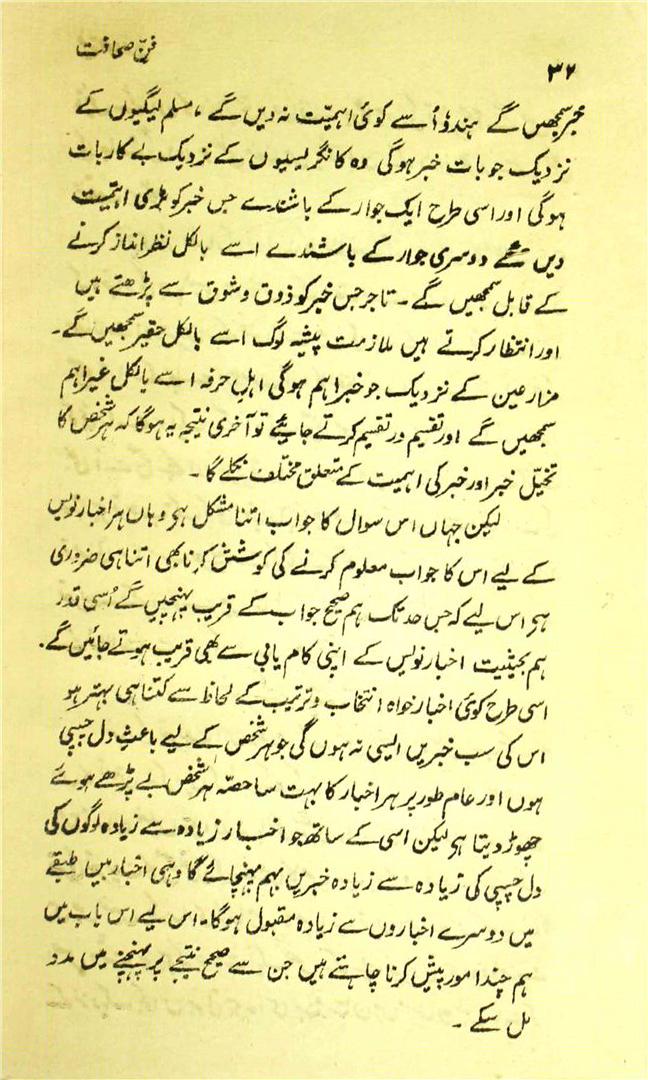 فنِّ صحافت
۳۲
خبر سمجھیں گے ہندو اُسے کوئی اہمیّت نہ دیں گے ، مسلم لیگیوں کے
نزدیک جو بات خبر ہوگی وہ کانگریسیوں کے نزدیک بے کار بات
ہوگی اور اسی طرح ایک جوار کے باشندے جس خبر کو بڑی اہمیت
دیں گے دوسری جوار کے باشندے اسے بالکل نظر انداز کرنے
کے قابل سمجھیں گے ۔ تاجر جس خبر کو ذوق و شوق سے پڑھتے ہیں
اور انتظار کرتے ہیں ملازمت پیشہ لوگ اسے بالکل حقیر سمجھیں گے۔
مزارعین کے نزدیک جو خبر اہم ہوگی اہلِ حرفہ اسے بالکل غیر اہم
سمجھیں گے اور تقسیم در تقسیم کرتے جائیے تو آخری نتیجہ یہ ہوگا کہ ہر شخص کا
تخیّل خبر اور خبر کی اہمیت کے متعلق مختلف نکلے گا ۔
لیکن جہاں اس سوال کا جواب اتنا مشکل ہی وہاں ہر اخبار نویس
کے لیے اس کا جواب معلوم کرنے کی کوشش کرنا بھی اتنا ہی ضروری
ہی اس لیے کہ جس حد تک ہم صحیح جواب کے قریب پہنچیں گے اُسی قدر
ہم بحیثیت اخبار نویس کے اپنی کام یابی سے بھی قریب ہوتے جائیں گے۔
اسی طرح کوئی اخبار خواہ انتخاب و ترتیب کے لحاظ سے کتنا ہی بہتر ہو
اس کی سب خبریں ایسی نہ ہوں گی جو ہر شخص کے لیے باعثِ دل چسپی
ہوں اور عام طور پر ہر اخبار کا بہت سا حصّہ ہر شخص بے پڑھے ہوئے
چھوڑ دیتا ہی لیکن اسی کے ساتھ جو اخبار زیادہ سے زیادہ لوگوں کی
دل چسپی کی زیادہ سے زیادہ خبریں بہم پہنچائے گا وہی اخبار بیں طبقے
میں دوسرے اخباروں سے زیادہ مقبول ہوگا۔ اس لیے اس باب میں
ہم چند امور پیش کرنا چاہتے ہیں جن سے صحیح نتیجے پر پہنچنے میں مدد
مل سکے ۔